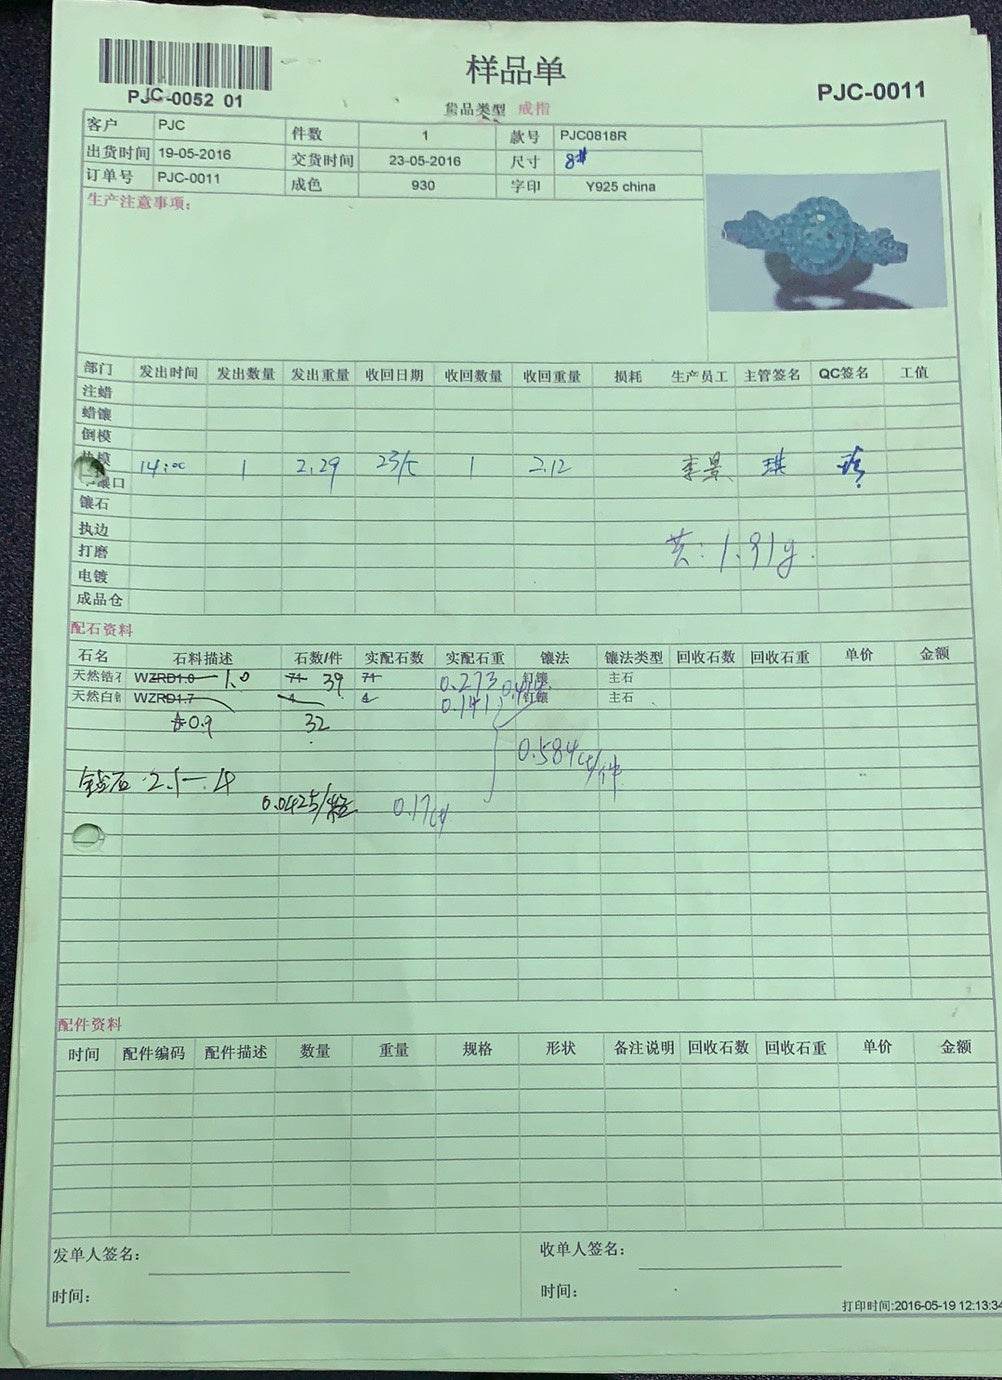 样品单
PJC-0052 01
PJC-0011
货品类型 戒指
客户 PJC 件数 1 款号 PJC0818R
出货时间 19-05-2016 交货时间 23-05-2016 尺寸 8#
订单号 PJC-0011 成色 930 字印 Y925 china
生产注意事项:
部门 发出时间 发出数量 发出重量 收回日期 收回数量 收回重量 损耗 生产员工 主管签名 QC签名 工值
注蜡
蜡镶
倒模
执模 14:00 1 2.29 23/5 1 2.12 李景 琪
镶口
镶石
执边
打磨 共: 1.91g
电镀
成品仓
配石资料
石名 石料描述 石数/件 实配石数 实配石重 镶法 镶法类型 回收石数 回收石重 单价 金额
天然锆石 WZRD1.0 1.0 71 39 71 0.273 钉镶 主石
天然白锆 WZRD1.7 4 4 0.141 钉镶 主石
0.9 32
0.584ct/件
钻石 2.5一4
0.0425/粒 0.17ct
配件资料
时间 配件编码 配件描述 数量 重量 规格 形状 备注说明 回收石数 回收石重 单价 金额
发单人签名: 收单人签名:
时间: 时间:
打印时间:2016-05-19 12:13:34